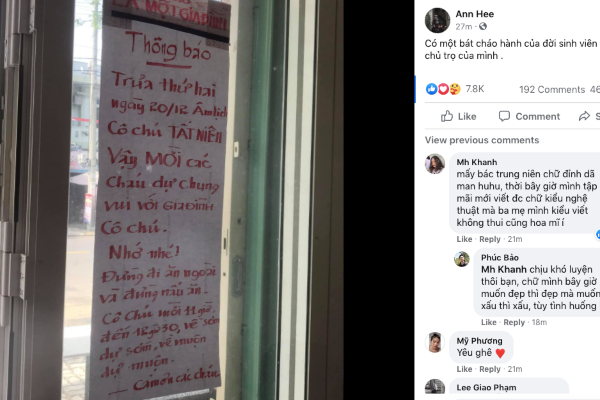 LÀ MỘT GIA ĐÌNH
Thông báo
Trưa thứ hai
ngày 20/12 Âm lịch
Cô chú TẤT NIÊN
Vậy MỜI các
Cháu dự chung
vui với GIA ĐÌNH
Cô chú.
Nhớ nhé!
Đừng đi ăn ngoài
và đừng nấu ăn.
Cô Chú mời 11 giờ,
đến 18 giờ 30, về sớm
dự sớm, về muộn
dự muộn.
Cảm ơn các cháu.
Ann Hee
27m
Có một bát cháo hành của đời sinh viên
chủ trọ của mình .
7.8K 192 Comments 46
Like Comment S
View previous comments
Mh Khanh
mấy bác trung niên chữ đỉnh dã
man huhu, thời bây giờ mình tập
mãi mới viết đc chữ kiểu nghệ
thuật mà ba mẹ mình kiểu viết
không thui cũng hoa mĩ í
Like · Reply · 21m
Phúc Bảo
Mh Khanh chịu khó luyện
thôi bạn, chữ mình bây giờ
muốn đẹp thì đẹp mà muốn
xấu thì xấu, tùy tình huống
Like · Reply · 18m
Mỹ Phương
Yêu ghê ❤️
Like · Reply · 21m
Lee Giao Phạm